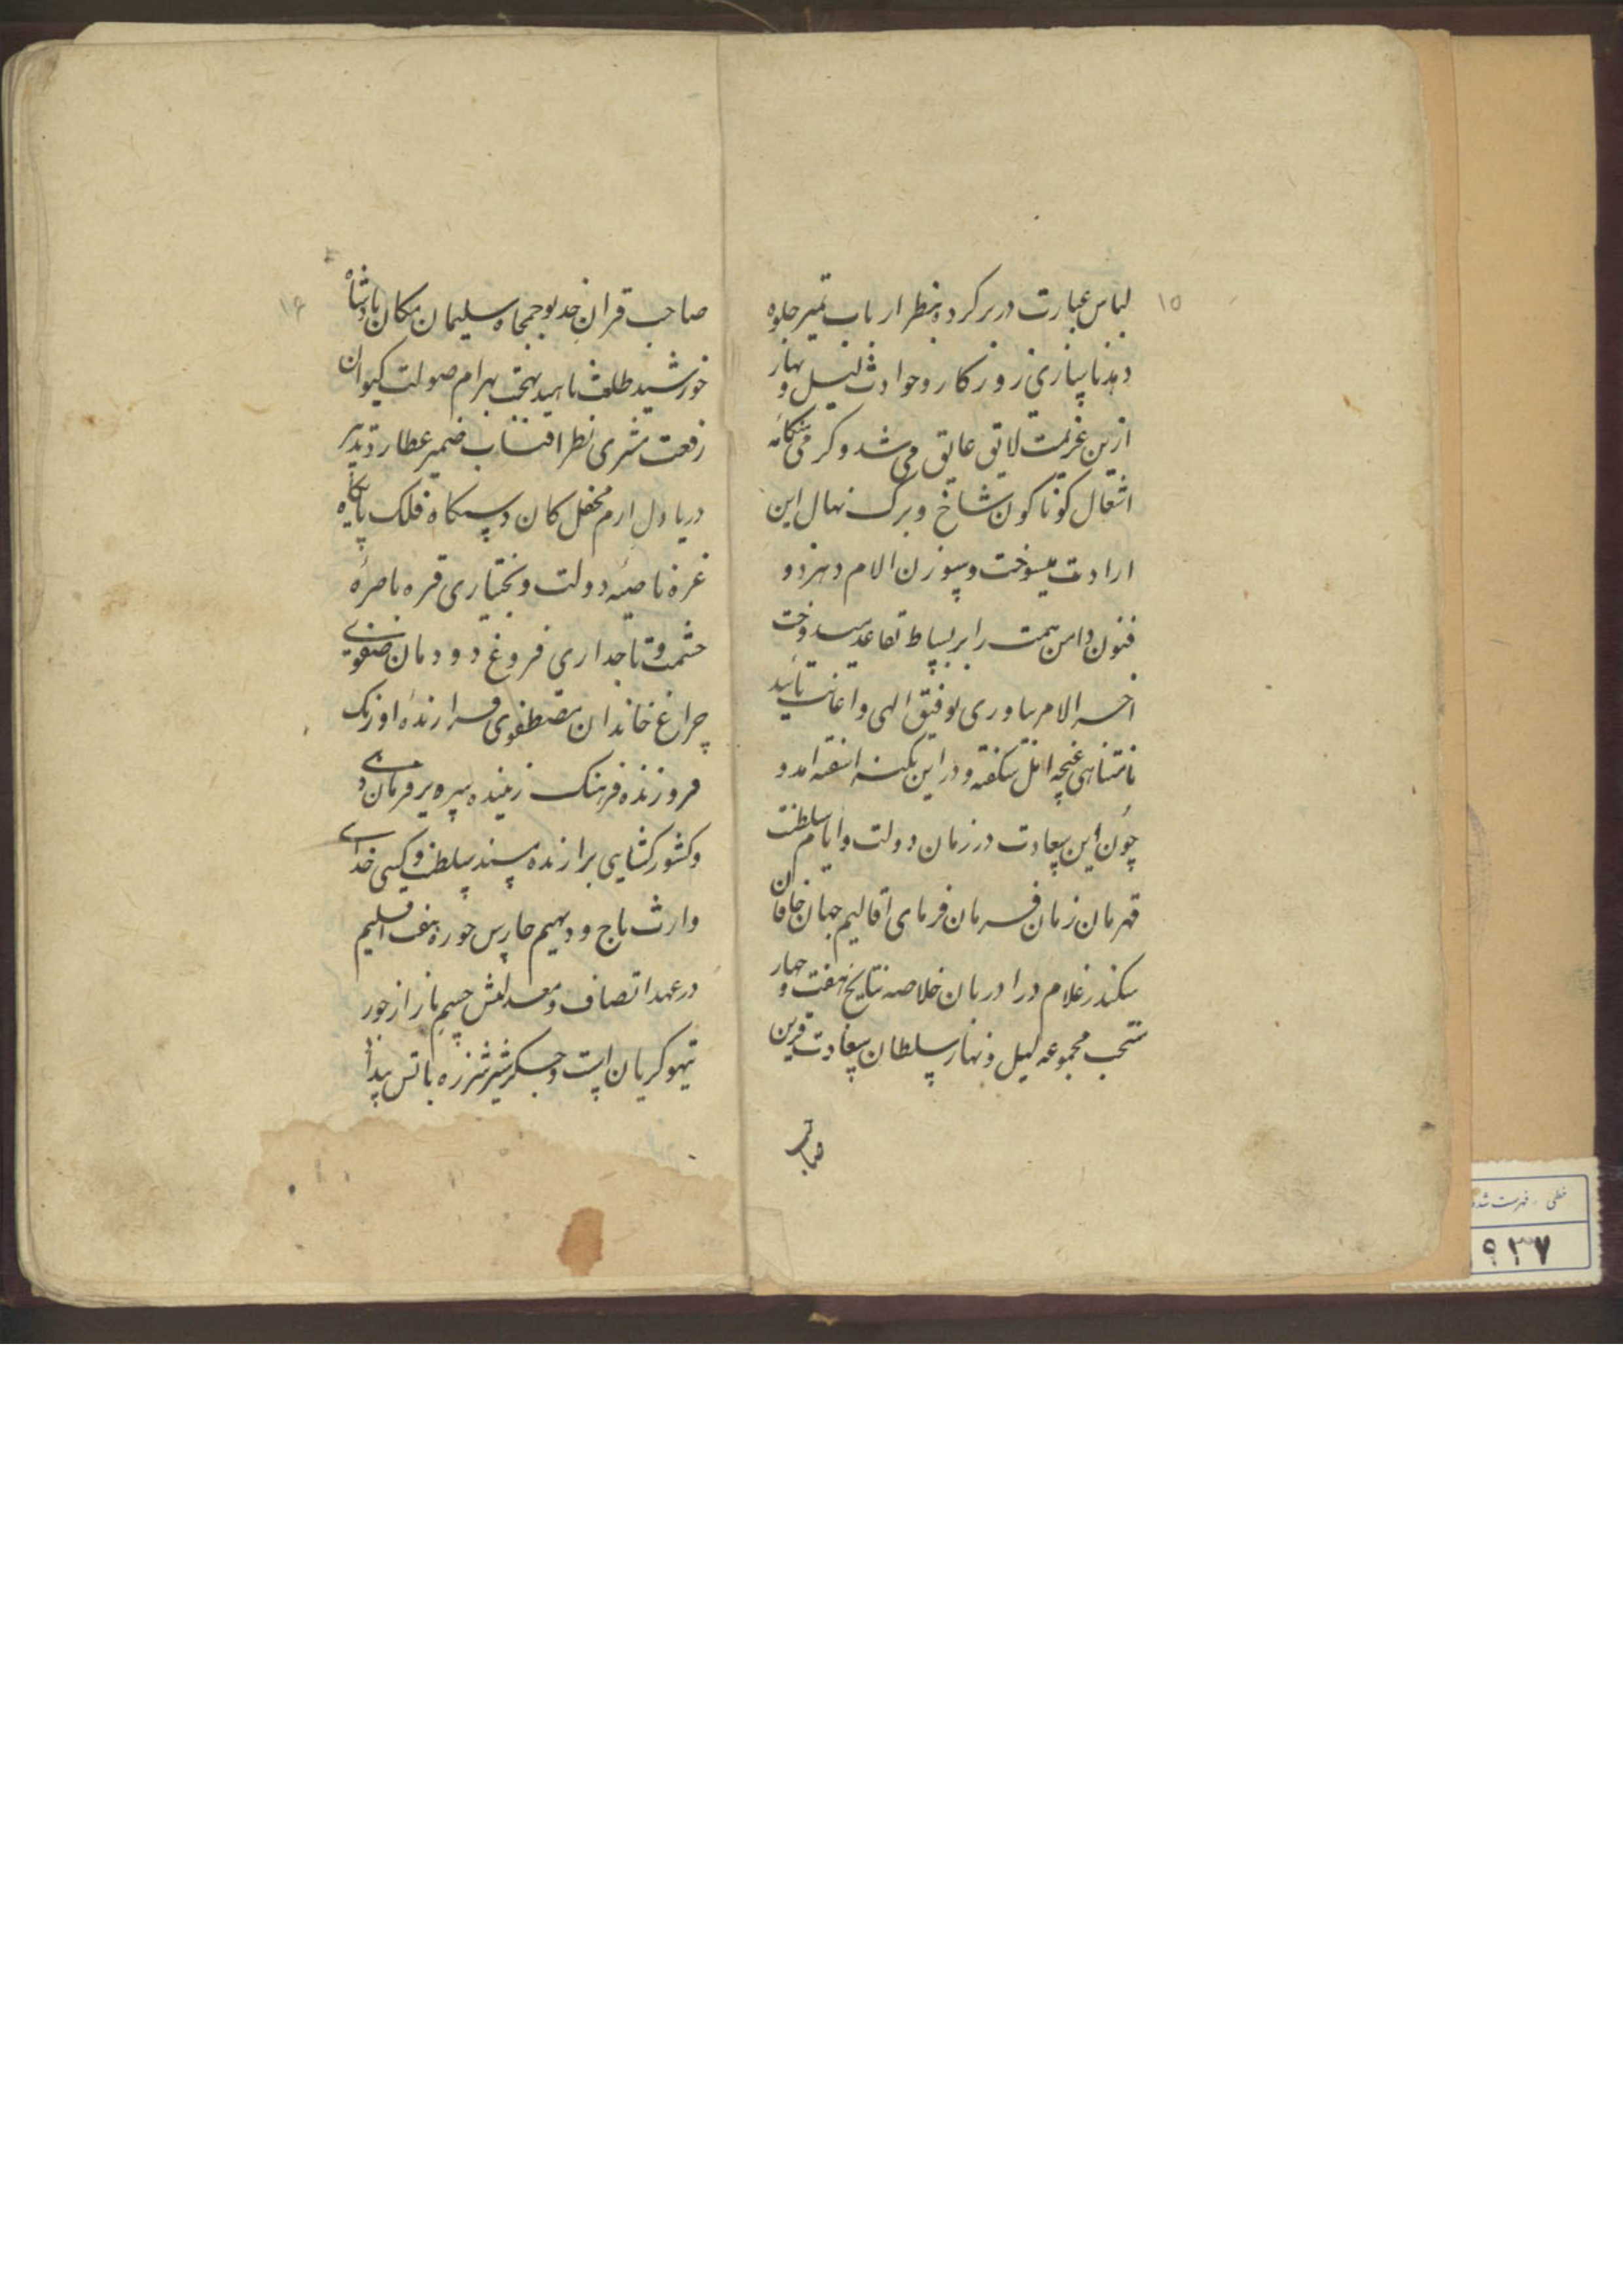 ۱۵
لباس عبارت در بر کرده بنظر ارباب تمیز جلوه
دهد ناسازی روزکار و حوادث لیل و نهار
ازین عزیمت لایق عایق می شد و کرمی هنکامه
اشغال کوناکون شاخ و برک نهال این
ارادت میسوخت و سوزن الام دهر ذو
فنون دامن همت را بر بساط تقاعد میدوخت
اخر الامر بیاوری توفیق الهی و اعانت تائید
نامتناهی غنچه امل شکفته و در این نکته اسفته امد و
چون این سعادت در زمان دولت و ایام سلطنت
قهرمان زمان فرمان فرمای اقالیم جهان خاقان
سکندر غلام دارا دربان خلاصه نتایج هفت و چهار
منتخب مجموعه لیل و نهار سلطان سعادت قرین
صاحب
۱۶
صاحب قران خدیو جمجاه سلیمان مکان پادشاه
خورشید طلعت ناهید بهجت بهرام صولت کیوان
رفعت مشتری نظر افتاب ضمیر عطارد تدبیر
دریا دل ارم محفل کان دستکاه فلک پایکاه
غره ناصیه دولت و بختیاری قره باصره
حشمت و تاجداری فروغ دودمان صفوی
چراغ خاندان مصطفوی فرازنده اورنک
فروزنده فرهنک زیبنده سریر فرمان دهی
و کشورکشایی برازنده مسند سلطنت و کیتی خدایی
وارث تاج و دیهیم حارس حوزه هفت اقلیم
در عهد انصاف و معدلتش چشم باز از جور
تیهو کریان است و جکر شیر شرزه باتش بیداد
خطی - فهرست شده
۹۳۷